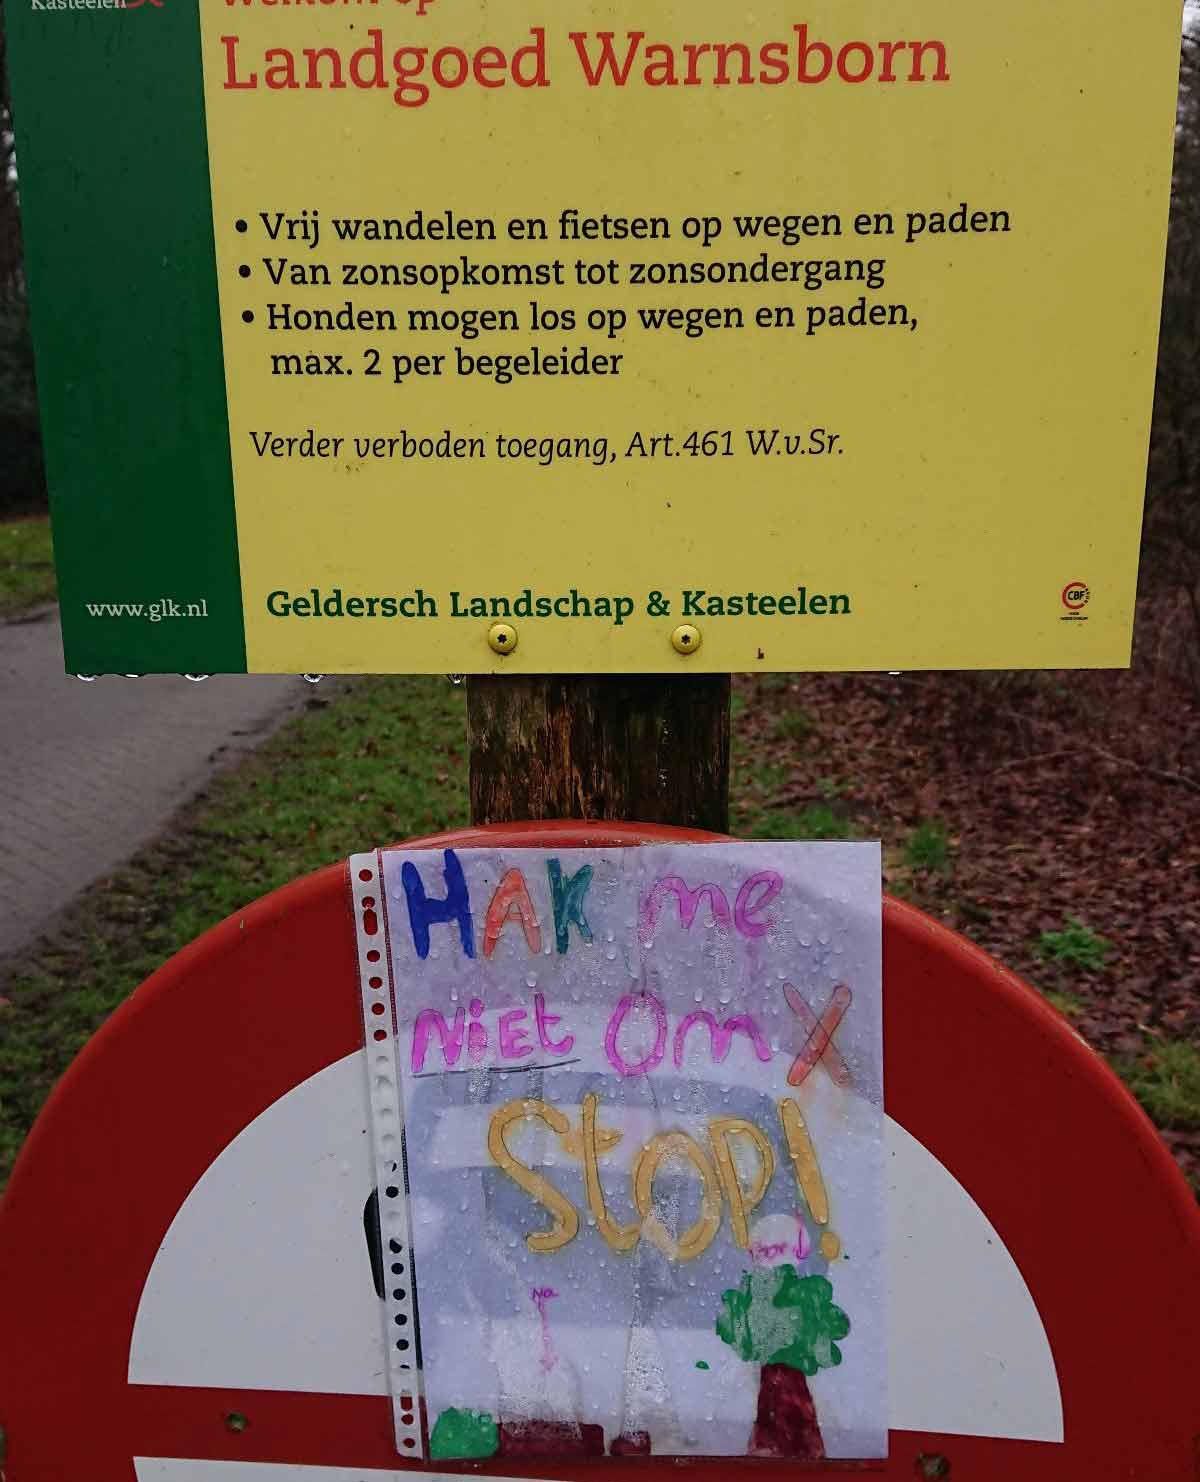 Kasteelen
Welkom op
Landgoed Warnsborn
• Vrij wandelen en fietsen op wegen en paden
• Van zonsopkomst tot zonsondergang
• Honden mogen los op wegen en paden,
max. 2 per begeleider
Verder verboden toegang, Art.461 W.v.Sr.
www.glk.nl
Geldersch Landschap & Kasteelen
CBF
HAK me
NiEt Om X
StOP!
Na